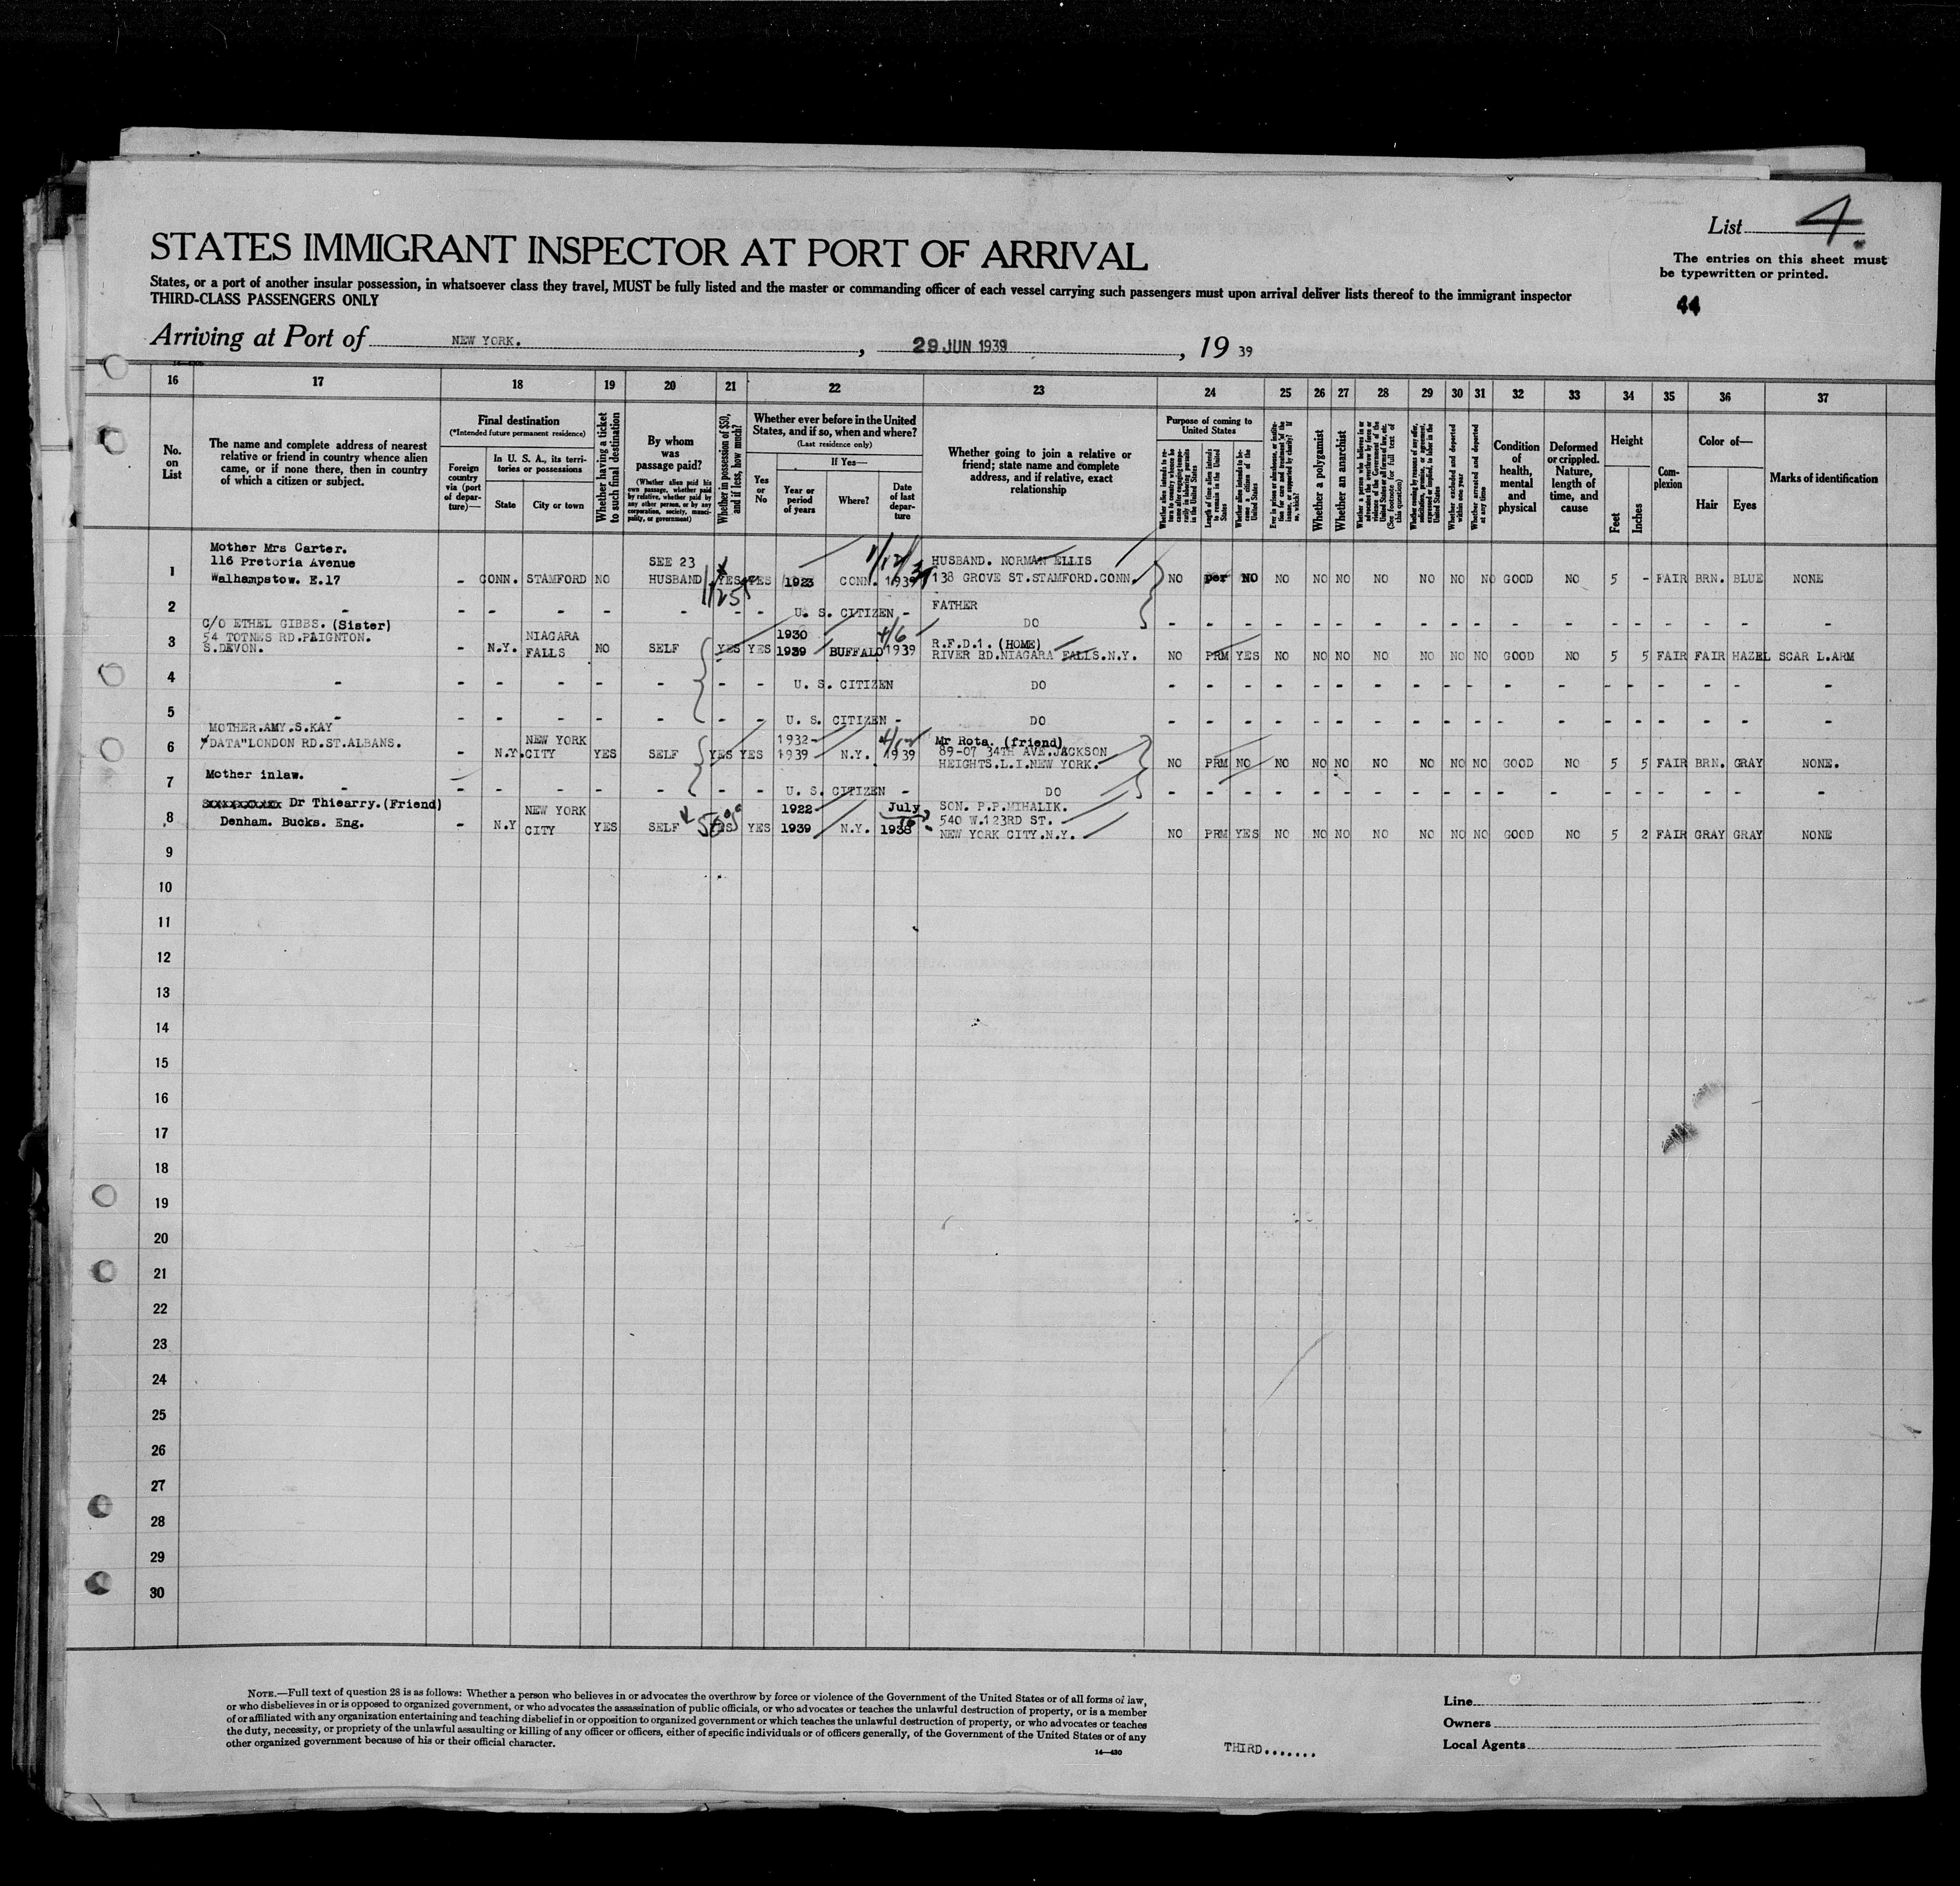 List 4
STATES IMMIGRANT INSPECTOR AT PORT OF ARRIVAL
The entries on this sheet must
be typewritten or printed.
States, or a port of another insular possession, in whatsoever class they travel, MUST be fully listed and the master or commanding officer of each vessel carrying such passengers must upon arrival deliver lists thereof to the immigrant inspector
THIRD-CLASS PASSENGERS ONLY
44
Arriving at Port of NEW YORK. , 29 JUN 1939 , 19 39
16 17 18 19 20 21 22 23 24 25 26 27 28 29 30 31 32 33 34 35 36 37
No. on List
The name and complete address of nearest
relative or friend in country whence alien
came, or if none there, then in country
of which a citizen or subject.
Final destination
(*Intended future permanent residence)
Foreign country via (port of departure)—
In U. S. A., its territories or possessions
State
City or town
Whether having a ticket to such final destination
By whom was passage paid?
(Whether alien paid his own passage, whether paid by relative, whether paid by any other person, or by any corporation, society, municipality, or government)
Whether in possession of $50, and if less, how much?
Whether ever before in the United States, and if so, when and where?
(Last residence only)
Yes or No
If Yes—
Year or period of years
Where?
Date of last departure
Whether going to join a relative or
friend; state name and complete
address, and if relative, exact
relationship
Purpose of coming to United States
Length of time alien intends to remain in the United States
Whether alien intends to become a citizen of the United States
Whether a polygamist
Whether an anarchist
(See footnote for full text of this question)
Whether excluded and deported within one year
Whether arrested and deported at any time
Condition of health, mental and physical
Deformed or crippled. Nature, length of time, and cause
Height
Feet
Inches
Complexion
Color of—
Hair
Eyes
Marks of identification
Mother Mrs Carter.
116 Pretoria Avenue
Walhampstow. E.17
1 - CONN. STAMFORD NO SEE 23 HUSBAND YES YES 1923 CONN. 1939 HUSBAND. NORMAN ELLIS
138 GROVE ST.STAMFORD.CONN. NO per NO NO NO NO NO NO NO NO GOOD NO 5 - FAIR BRN. BLUE NONE
2 - - - - - - - - U. S. CITIZEN - FATHER
DO - - - - - - - - - - - - - - - - - -
C/O ETHEL GIBBS. (Sister)
54 TOTNES RD.PAIGNTON.
S.DEVON.
3 - N.Y. NIAGARA FALLS NO SELF YES YES 1930 1939 BUFFALO 4/6 1939 R.F.D.1. (HOME)
RIVER RD.NIAGARA FALLS.N.Y. NO PRM YES NO NO NO NO NO NO NO GOOD NO 5 5 FAIR FAIR HAZEL SCAR L.ARM
4 - - - - - - - - U. S. CITIZEN DO - - - - - - - - - - - - - - - - - -
5 - - - - - - - - U. S. CITIZEN - DO - - - - - - - - - - - - - - - - - -
MOTHER.AMY.S.KAY
"DATA"LONDON RD.ST.ALBANS.
6 - N.Y. NEW YORK CITY YES SELF YES YES 1932- 1939 N.Y. 1939 Mr Rota. (friend)
89-07 34TH AVE.JACKSON
HEIGHTS.L.I.NEW YORK. NO PRM NO NO NO NO NO NO NO NO GOOD NO 5 5 FAIR BRN. GRAY NONE.
7 Mother inlaw. - - - - - - - U. S. CITIZEN - DO - - - - - - - - - - - - - - - - - -
Dr Thiearry.(Friend)
Denham. Bucks. Eng.
8 - N.Y NEW YORK CITY YES SELF YES YES 1922 1939 N.Y. July 1938 SON. P.P.MIHALIK.
540 W.123RD ST.
NEW YORK CITY.N.Y. NO PRM YES NO NO NO NO NO NO NO GOOD NO 5 2 FAIR GRAY GRAY NONE
9
10
11
12
13
14
15
16
17
18
19
20
21
22
23
24
25
26
27
28
29
30
NOTE.—Full text of question 28 is as follows: Whether a person who believes in or advocates the overthrow by force or violence of the Government of the United States or of all forms of law,
or who disbelieves in or is opposed to organized government, or who advocates the assassination of public officials, or who advocates or teaches the unlawful destruction of property, or is a member
of or affiliated with any organization entertaining and teaching disbelief in or opposition to organized government or which teaches the unlawful destruction of property, or who advocates or teaches
the duty, necessity, or propriety of the unlawful assaulting or killing of any officer or officers, either of specific individuals or of officers generally, of the Government of the United States or of any
other organized government because of his or their official character.
14—430
THIRD.......
Line
Owners
Local Agents